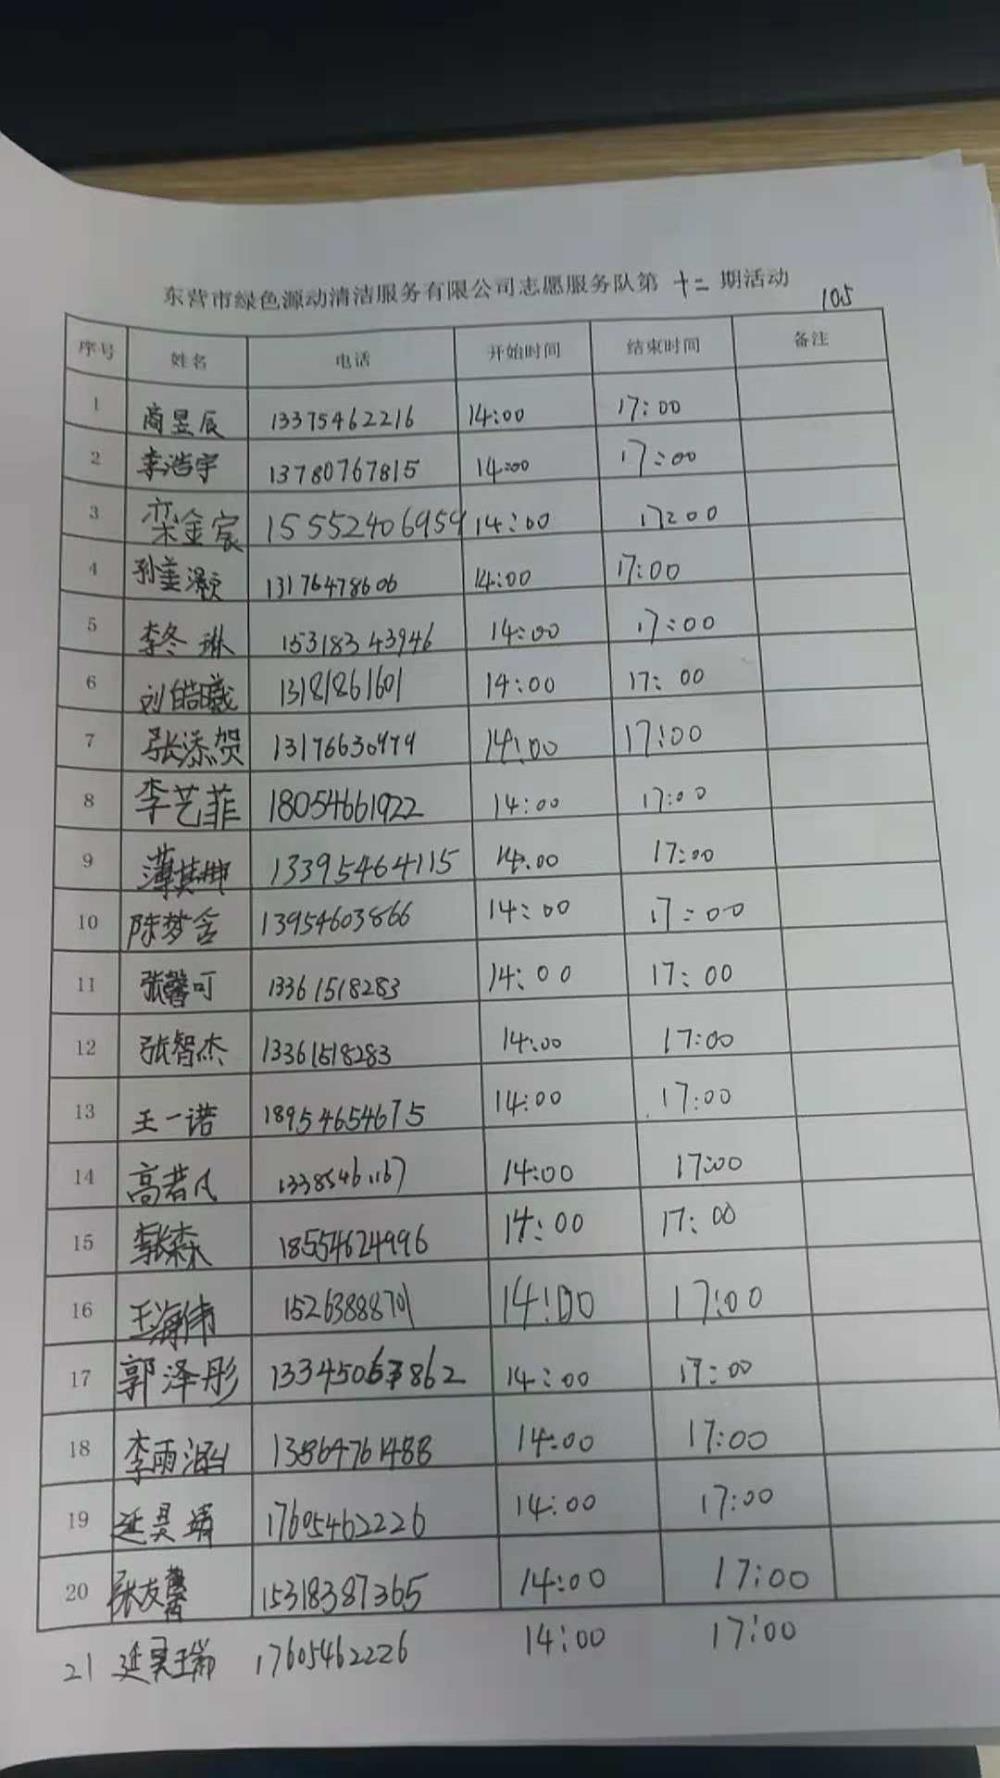 东营市绿色源动清洁服务有限公司志愿服务队第 十二 期活动
105
序号 姓名 电话 开始时间 结束时间 备注
1 商昱辰 13375462216 14:00 17:00
2 李浩宇 13780767815 14:00 17:00
3 栾金宸 15552406959 14:00 17:00
4 孙姜灏 13176478606 14:00 17:00
5 李冬琳 15318343946 14:00 17:00
6 刘皓曦 13181861601 14:00 17:00
7 张添贺 13176630979 14:00 17:00
8 李艺菲 18054661922 14:00 17:00
9 薄其坤 13395464115 14:00 17:00
10 陈梦含 13954603866 14:00 17:00
11 张馨可 13361518283 14:00 17:00
12 张智杰 13361518283 14:00 17:00
13 王一诺 18954654675 14:00 17:00
14 高若凡 13385461167 14:00 17:00
15 18554624996 14:00 17:00
16 王海伟 15263888701 14:00 17:00
17 郭泽彤 13345063862 14:00 17:00
18 李雨涵 13864761488 14:00 17:00
19 延昊靖 17605462226 14:00 17:00
20 张友馨 15318387365 14:00 17:00
21 延昊瑞 17605462226 14:00 17:00